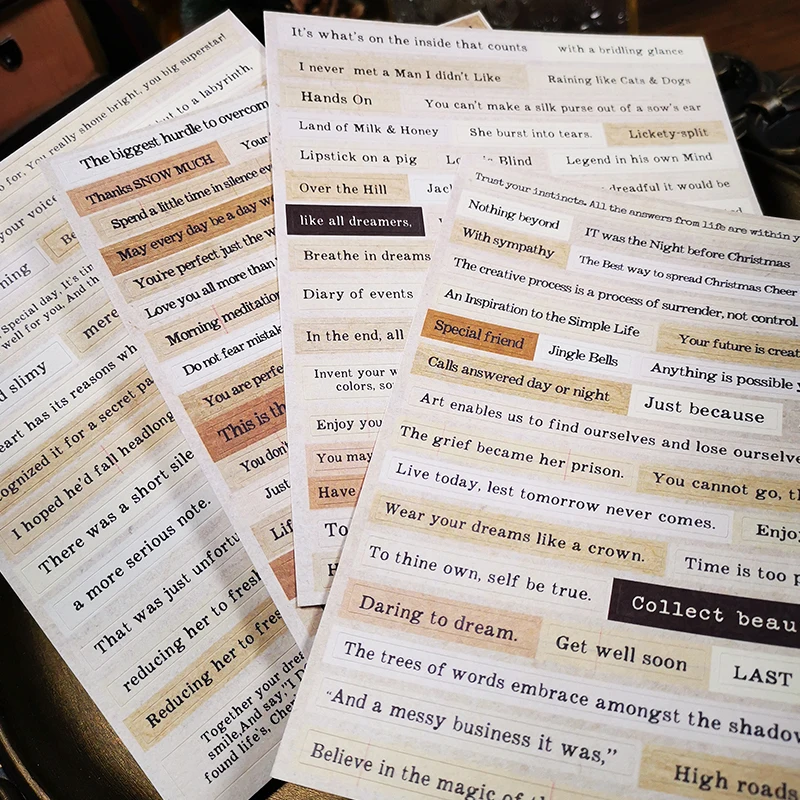 so far. You really shone bright, you big superstar!
to a labyrinth.
your voice
Special day, It's
well for you. And
mere
d slimy
heart has its reasons
for a secret
I hoped he'd fall headlong
There was a short
a more serious note.
That was just
reducing her to
Reducing her to
Together your
smile. And say, 'I
found life's,
The biggest hurdle to overcom
Thanks SNOW MUCH
Your
Spend a little time in silence
May every day be a day
You're perfect just the
Love you all more than
Morning meditation
Do not fear
You are
This is
You don't
Just
It's what's on the inside that counts
with a bridling glance
I never met a Man I didn't Like
Raining like Cats & Dogs
Hands On
You can't make a silk purse out of a sow's ear
Land of Milk & Honey
She burst into tears.
Lickety-split
Lipstick on a pig
Blind
Legend in his own Mind
Over the Hill
dreadful it would be
like all dreamers,
Breathe in dreams
Diary of events
In the end, all
Invent your
colors,
Enjoy
You may
Have
To
Trust your instincts. All the answers from life are within
Nothing beyond
IT was the Night before Christmas
With sympathy
The Best way to spread Christmas Cheer
The creative process is a process of surrender, not control.
An Inspiration to the Simple Life
Your future is
Special friend
Jingle Bells
Anything is possible
Calls answered day or night
Just because
Art enables us to find ourselves and lose ourselves
The grief became her prison.
You cannot go,
Live today, lest tomorrow never comes.
Wear your dreams like a crown.
Time is too
To thine own, self be true.
Collect beau
Daring to dream.
Get well soon
LAST
The trees of words embrace amongst the
"And a messy business it was,"
High roads
Believe in the magic of